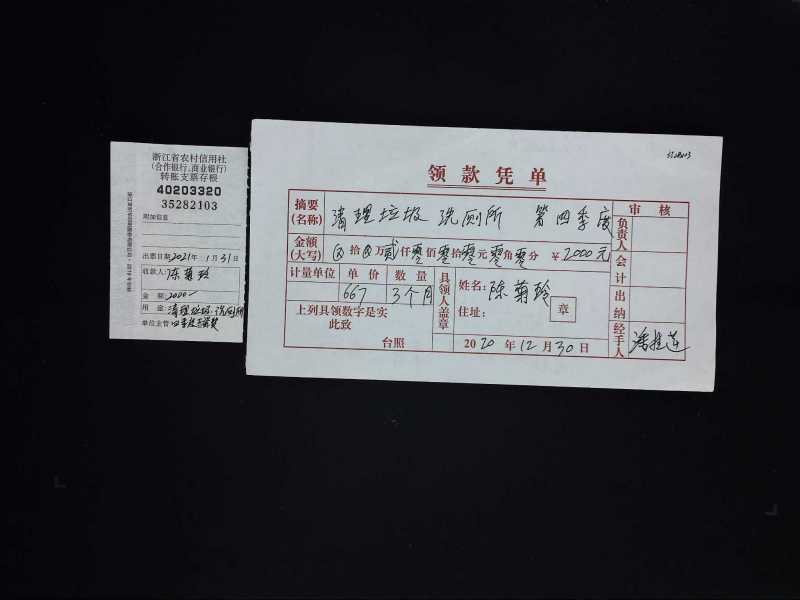 浙江省农村信用社
(合作银行、商业银行)
转账支票存根
40203320
35282103
附加信息
出票日期2021年1月31日
收款人:陈菊玲
金额:2000
用途:清理垃圾、洗厕所
单位主管
领款凭单
摘要(名称) 清理垃圾 洗厕所 第四季度
审核
金额(大写) ⊗拾⊗万贰仟零佰零拾零元零角零分 ¥2000元
负责人
会计
计量单位 单价 数量
667 3个月
具领人盖章
姓名:陈菊玲
住址:
章
出纳
上列具领数字是实
此致
台照
2020年12月30日
经手人